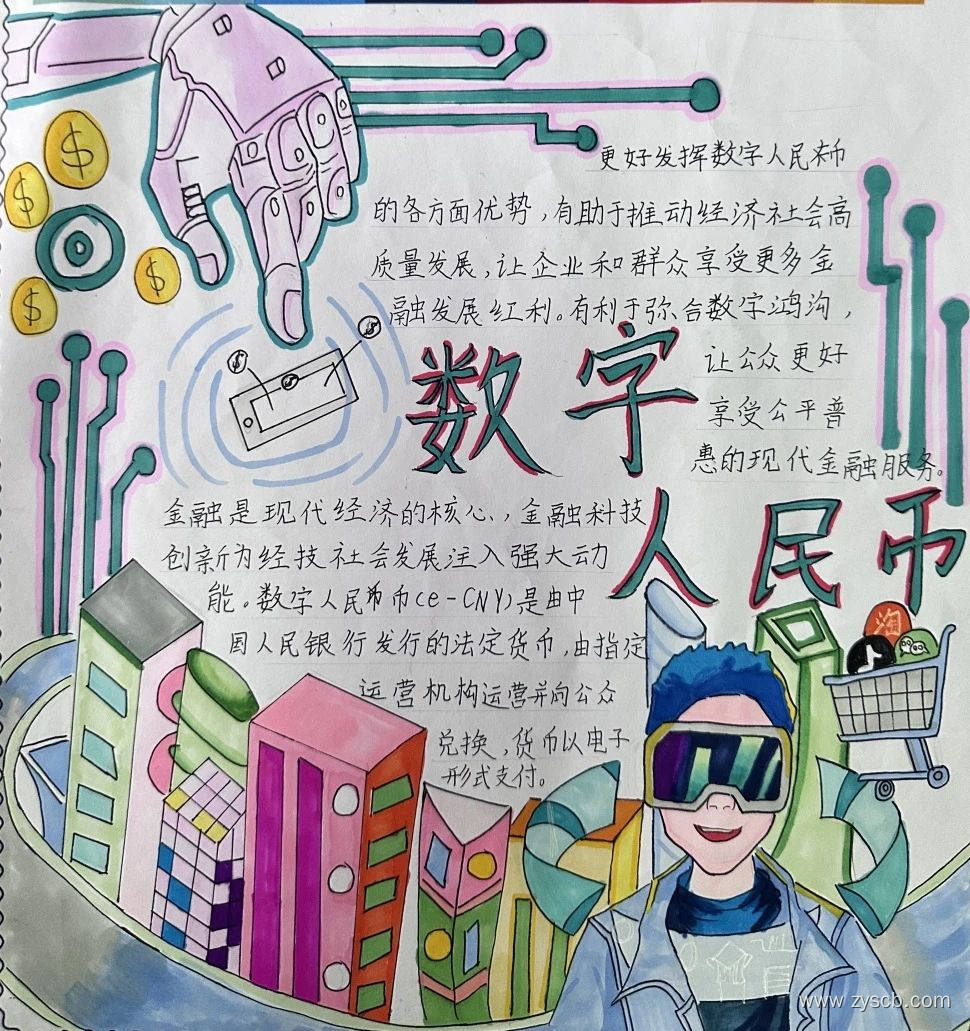 更好发挥数字人民币
的各方面优势，有助于推动经济社会高
质量发展，让企业和群众享受更多金
融发展红利。有利于弥合数字鸿沟，
让公众更好
享受公平普
惠的现代金融服务。
数字
人民币
金融是现代经济的核心，金融科技
创新为经技社会发展注入强大动
能。数字人民币(e-CNY)是由中
国人民银行发行的法定货币，由指定
运营机构运营并向公众
兑换、货币以电子
形式支付。
淘
www.zyscb.com